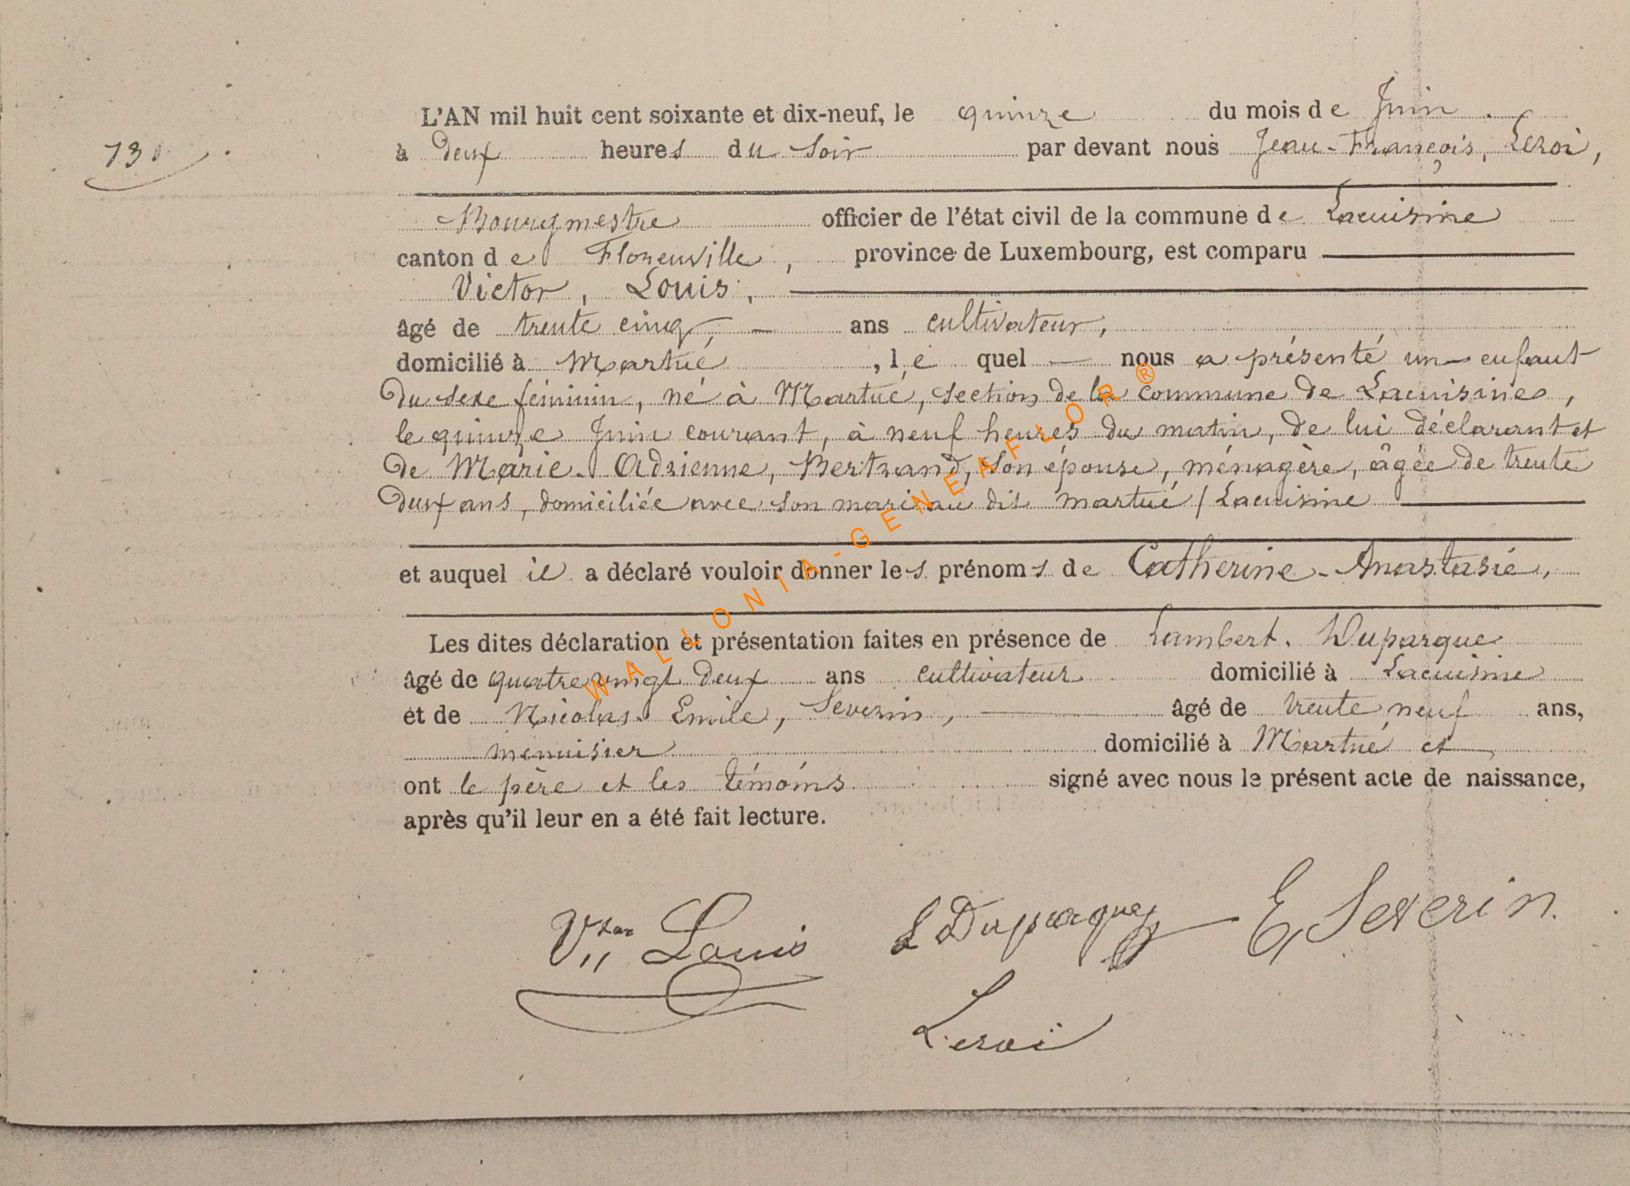 L'AN mil huit cent soixante et dix-neuf, le quinze du mois de Juin.
13
à deux heures du soir par devant nous Jean-François, Leroi,
Bourgmestre officier de l'état civil de la commune de Lacuisine
canton de Florenville, province de Luxembourg, est comparu
Victor, Louis,
âgé de trente cinq, ans cultivateur,
domicilié à Martué, le quel nous a présenté un enfant
du sexe féminin, né à Martué, section de la commune de Lacuisine,
le quinze Juin courant, à neuf heures du matin, de lui déclarant et
de Marie-Adrienne, Bertrand, son épouse, ménagère, âgée de trente
deux ans, domiciliée avec son mari au dit Martué / Lacuisine
et auquel il a déclaré vouloir donner les prénoms de Catherine-Anastasie,
Les dites déclaration et présentation faites en présence de Lambert. Duparque
âgé de quatre vingt deux ans cultivateur domicilié à Lacuisine
et de Nicolas. Emile, Severin, âgé de trente neuf ans,
menuisier domicilié à Martué et
ont le père et les témoins signé avec nous le présent acte de naissance,
après qu'il leur en a été fait lecture.
Vtor Louis L Duparque E, Severin.
Leroi
WALLONIA-GENEAFLOR®